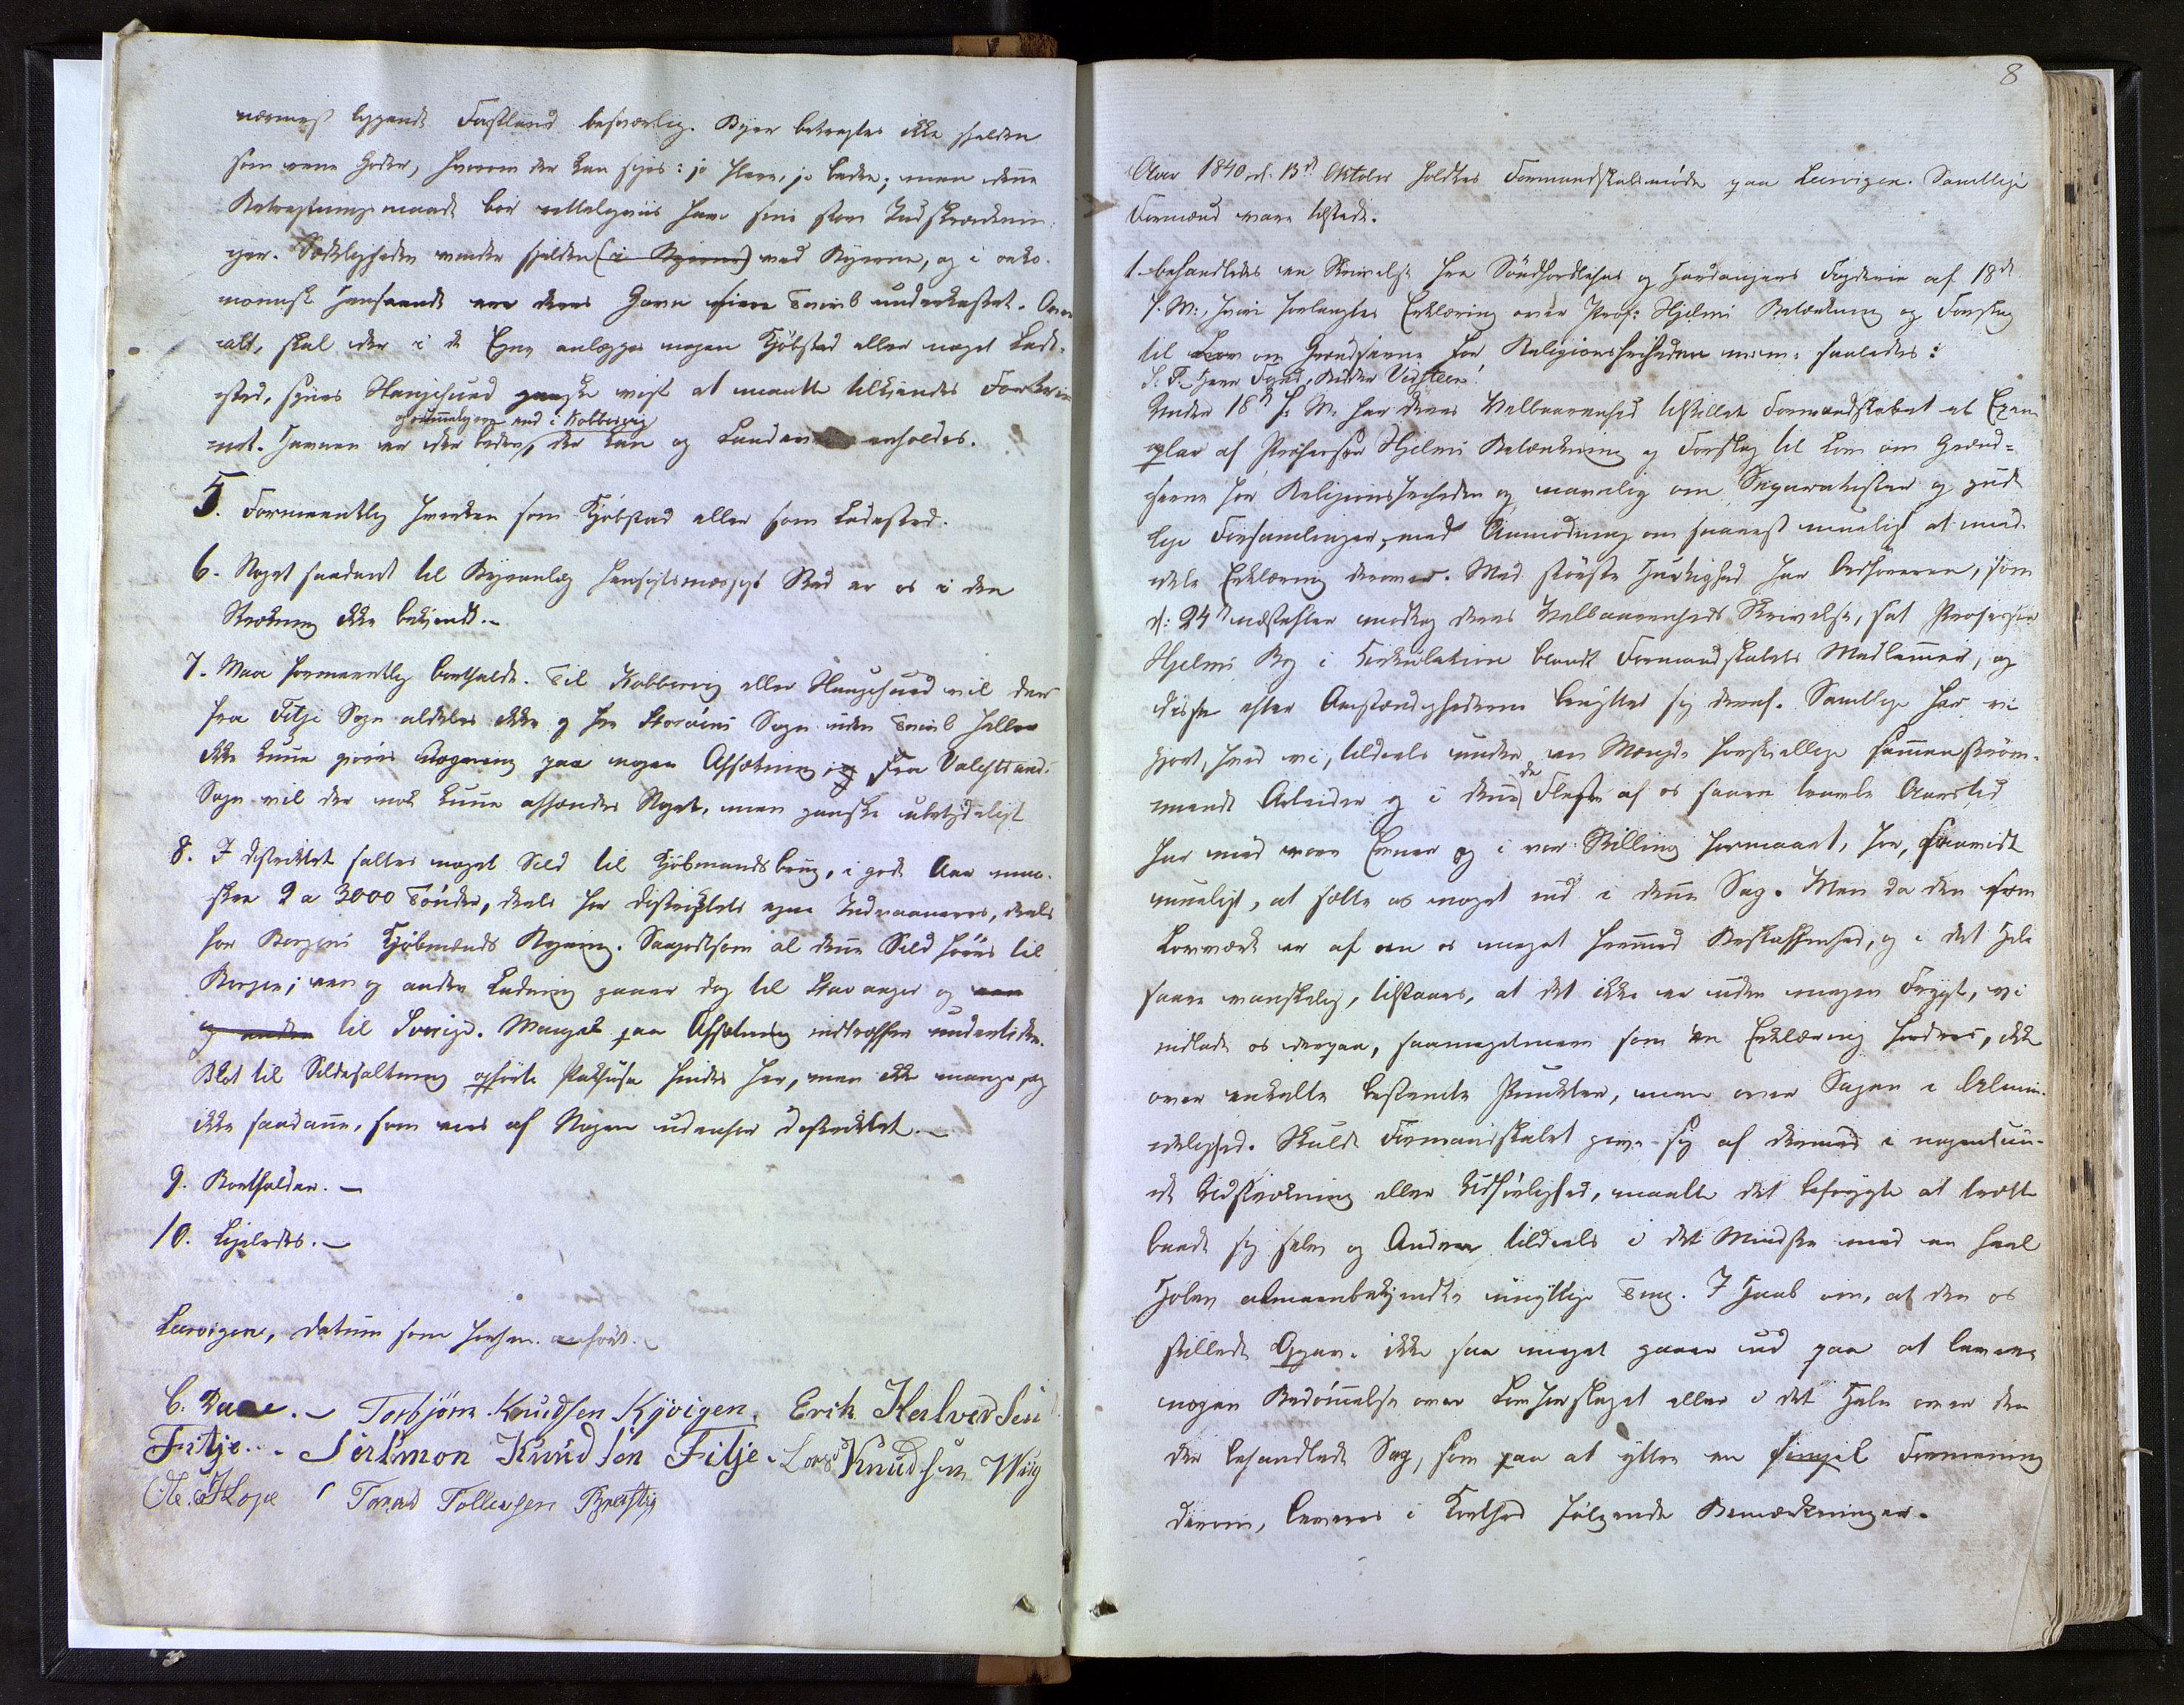 nærmest liggende Fastland besværlig. Byer betragtes ikke sjelden
som rene Goder, hvorom der kan siges: jo flere, jo bedre; men denne
Betragtningsmaade bør rettelsigviis have sine store Indskrænknin-
ger. Sædeligheden vinder sjelden (i Byerne) ved Byerne, og i oeko-
nomisk Henseende ere deres Gavn fleere Tvivl underkastet. Over-
alt, skal der i de Egne anlægges nogen Kjøbstad eller noget Lade-
sted, synes Haugesund ganske vist at maatte tilkjendes Fortrin-
net. Havnen er der bedre, der kan og Landeveie anholdes.
og rummeligere end i Kobbervig
5. Formeentlig hverken som Kjøbstad eller som Ladested.
6. Noget saadant til Byeanlæg hensigtsmæssigt Sted er os i den
Strækning ikke bekjendt.-
7. Maa formeentlig bortfalde. Til Kobbervig eller Haugesund vil der
fra Fitje Sogn aldeles ikke og fra Storøens Sogn uden Tvivl heller
ikke kunne gjøres Regning paa nogen Afsætning, og fra Valestrands
Sogn vil der nok kunne afsendes Noget, men ganske ubetydeligt
8. I Distriktet saltes noget Sild til Kjøbmandsbrug, i gode Aar maa-
skee 2 a 3000 Tønder, deels for Distriktets egne Indvaaneres, deels
for Bergens Kjøbmænds Regning. Saagodtsom al denne Sild føres til
Bergen; een og anden Ladning gaaer dog til Stavanger og een
og anden til Sverige. Mangel paa Afsætning indtræffer undertiden.
Blot til Sildesaltning opførte Pakhuse findes her, men ikke mange, og
ikke saadanne, som eies af Nogen udenfor Distriktet.-
9. Bortfalder.-
10. Ligeledes.-
Leervigen, datum som forhen anført.-
C. Daae.- Torbjørn Knudsen Kyvigen. Erik Halvorsen
Fitje.- Salomon Knudsen Fitje. Lars Knudsen Wiig
Ole Hope Tomas Tollevsen
8
Aar 1840 d. 13de Oktober holdtes Formandskabsmøde paa Leervigen. Samtlige
Formænd vare tilstede.
1. behandledes en Skrivelse fra Søndhordlehns og Hardangers Fogderie af 18de
f. M., hvori forlangtes Erklæring over Prof: Hjelms Betænkning og Forslag
til Lov om Grændserne for Religionsfriheden m.m. saaledes:
S. T. Herr Foged, Ridder Vidsteen!
Under 18de f. M. har Deres Velbaarenhed tilstillet Formandskabet et Exem-
plar af Professor Hjelms Betænkning og Forslag til Lov om Grænd-
serne for Religionsfriheden og navnlig om Separatister og gude-
lige Forsamlinger, med Anmodning om snarest mueligt at med-
dele Erklæring derover. Med største Hurtighed har Ordføreren, som
d: 24de næstefter modtog Deres Velbaarenheds Skrivelse, sat Professor
Hjelms Bog i Cirkulation blandt Formandskabets Medlemmer, og
disse efter Omstændighederne benyttet sig deraf. Samtlige har vi
gjort, hvad vi, tildeels under en Mængde forskjellige sammenstrøm-
mende Arbeider og i denne de Fleste af os saare travle Aarstid
har med vore Evner og i vor Stilling formaaet, for, saavidt
mueligt, at sætte os noget ind i denne Sag. Men da den som
Lovværk er af en os meget fremmed Beskaffenhed, og i det Hele
saare vanskelig, tilstaaes, at det ikke er uden megen Frygt, vi
indlade os derpaa, saameget mere som en Erklæring fordres, ikke
over enkelte bestemte Punkter, men over Sagen i Almin-
delighed. Skulde Formandskabet give sig af dermed i nogenlun-
de Udstrækning eller Udførlighed, maatte det befrygte at trætte
baade sig selv og Andre tildeels i det Mindste med en heel
Hoben almeenbekjendte unyttige Ting. I Haab om, at den os
stillede Opgave ikke saa meget gaaer ud paa at levere
nogen Bedømmelse over Lovforslaget eller i det Hele over den
der behandlede Sag, som paa at yttre en simpel Formening
derom, leveres i Korthed følgende Bemærkninger.